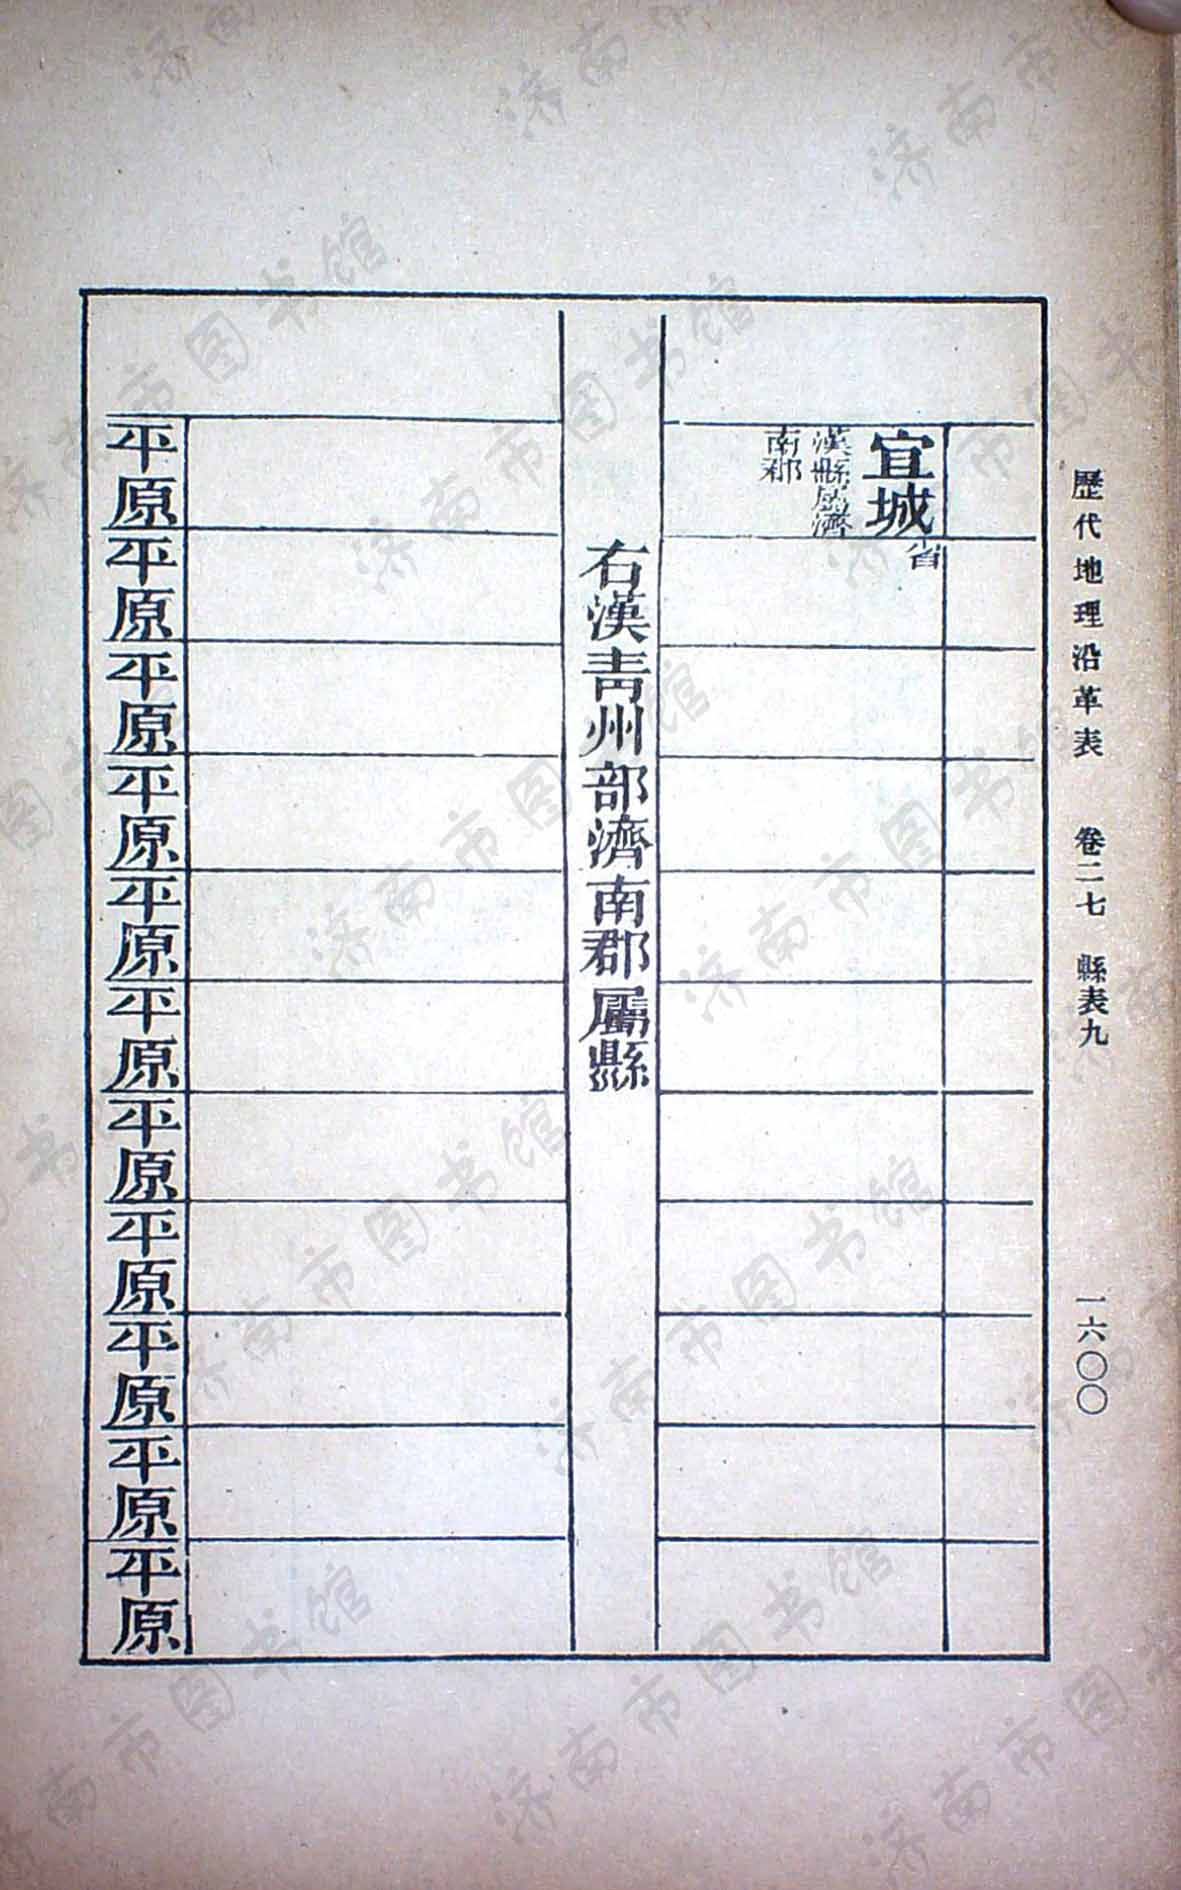 歷代地理沿革表 卷二七 縣表九 一六〇〇
宜城
漢縣屬濟
南郡
省
右漢青州部濟南郡屬縣
平原
平原
平原
平原
平原
平原
平原
平原
平原
平原
平原
济南市图书馆